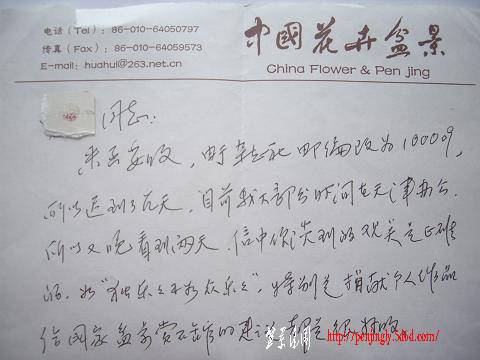 电话(Tel): 86-010-64050797
传真(Fax): 86-010-64059573
E-mail: huahui@263.net.cn
中國花卉盆景
China Flower & Pen jing
同志:
来函安收,由于杂志社邮编改为100009,
所以迟到了几天,目前我大部分时间在天津办公,
所以又晚看到两天。信中你谈到的观点是正确
的,如“独乐乐不如众乐乐”,特别是捐献个人作品
给国家盆景赏石
http://penjingly.5d6d.com/